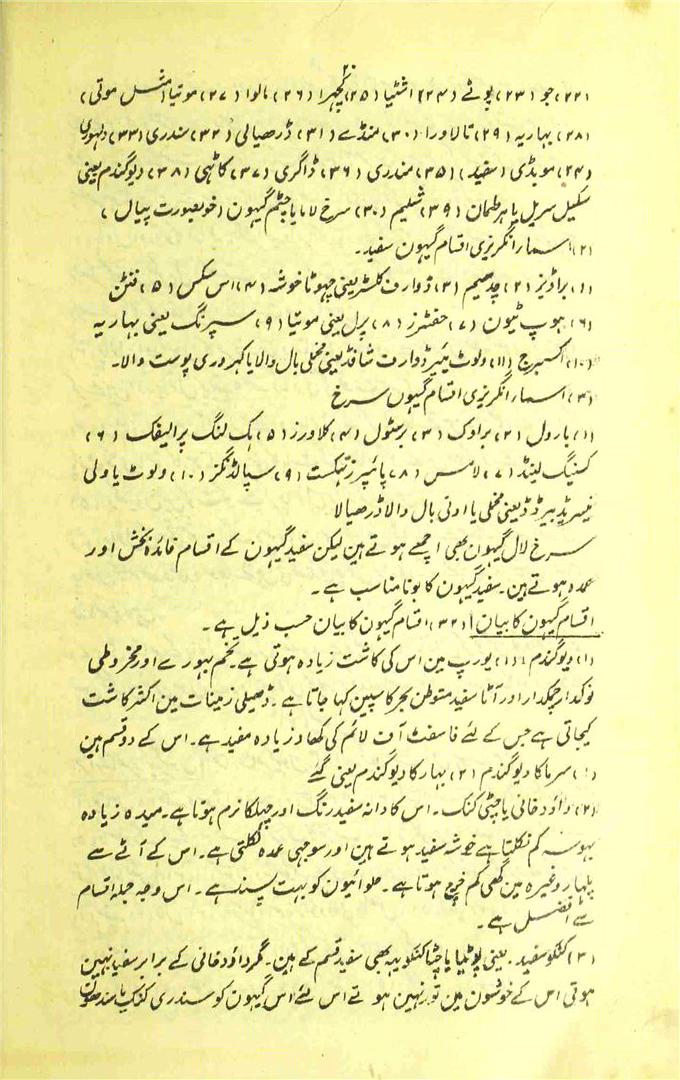 ۲۰
(۲۲) جو (۲۳) پوٹے (۲۴) اشٹیا (۲۵) کھپرا (۲۶) مالوا (۲۷) موتیا (مثل موتی)
(۲۸) بہاریہ (۲۹) تالاورا (۳۰) منڈے (۳۱) ڈرھیالی (۳۲) سندری (۳۳) دلہوری
(۳۴) موبڈی (سفید) (۳۵) مندری (۳۶) ڈاگری (۳۷) کاٹہی (۳۸) دیوگندم یعنی
سکیل سریل یا ہرطمان (۳۹) شلیم (۳۰) سرخ لاما یا جٹم گیہون (خوبصورت پیال)
(۲) اسمار انگریزی اقسام گیہون سفید۔
(۱) براڈیز (۲) چدہیم (۳) ڈوارف کلسٹر یعنی چہوٹا خوشہ (۴) اس سکس (۵) فنٹن
(۶) ہوپ ٹیون (۷) حفنٹرز (۸) پرل یعنی موتیا (۹) سپرنگ یعنی بہاریہ
(۱۰) اکسبرج (۱۱) ولوٹ ہئیرڈ وارف شافڈ یعنی مخملی بال والا یا کہروری پوست والا۔
(۳) اسمار انگریزی اقسام گیہوں سرخ
(۱) بارول (۲) براوک (۳) برسٹول (۴) کلاورز (۵) ہک لنگ پرالیفک (۶)
کسنیگ لینڈ (۷) لامس (۸) پائپرز تہکسٹ (۹) سپالڈنگز (۱۰) ولوٹ یا ولی
ئیسرڈ بیرڈڈ یعنی مخملی یا اوتی بال والا ڈرھیالا
سرخ لال گیہون بھی اچھے ہوتے ہین لیکن سفید گیہون کے اقسام فائدہ بخش اور
عمدہ ہوتے ہین۔ سفید گیہون کا بونا مناسب ہے۔
اقسام گیہون کا بیان (۳۲) اقسام گیہون کا بیان حسب ذیل ہے۔
(۱) دیوگندم :(۱) یورپ مین اس کی کاشت زیادہ ہوتی ہے۔ تخم بہورے اور مخروطی
نوکدار چمکدار اور آٹا سفید متوطن بحر کاسپین کہا جاتا ہے۔ ڈھیلی زمینات مین اکثر کاشت
کیجاتی ہے جس کے لئے فاسفٹ آف لائم کی کھاد زیادہ مفید ہے۔ اس کے دو قسم ہین
(۱) سرما کا دیوگندم (۲) بہار کا دیوگندم یعنی گئے
(۲) داؤد خانی یا چٹی کنک۔ اس کا دانہ سفید رنگ اور چہلکا نرم ہوتا ہے۔ میدہ زیادہ
بہوسہ کم نکلتا ہے خوشہ سفید ہوتے ہین اور سوجی عمدہ نکلتی ہے۔ اس کے آٹے سے
پلہار وغیرہ مین گھی کم خرچ ہوتا ہے۔ حلوائیون کو بہت پسند ہے۔ اس وجہ جملہ اقسام
سے افضل ہے۔
(۳) کنکو سفید۔ یعنی پوٹیلیا یا چٹا کنکو یہ بھی سفید قسم کے ہین۔ مگر داؤد خانی کے برابر سفید نہین
ہوتی اس کے خوشون مین تور نہین ہوتے اس لئے اس گیہون کو سندری کنک یا